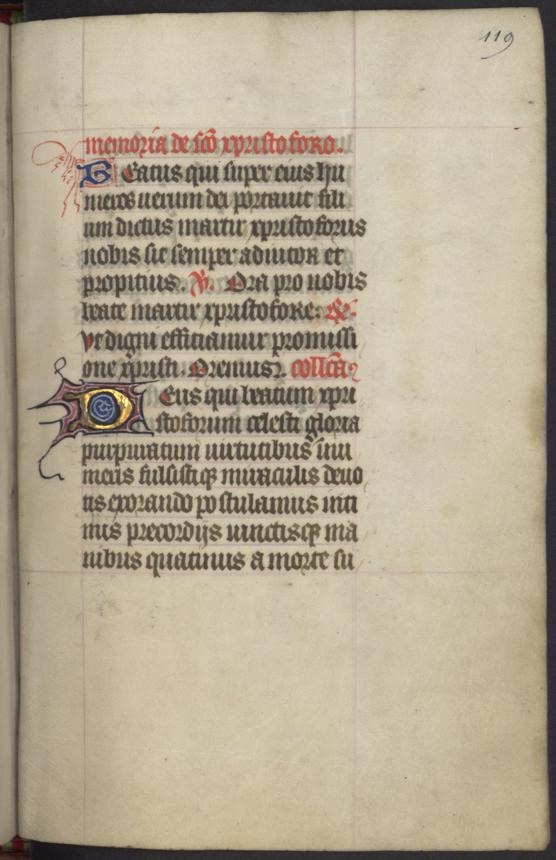 119
memoria de sco xpristoforo.
Beatus qui super eius hu
meros uerum dei portauit fili
um dictus martir xpristoforus
nobis sit semper adiutor et
propitius. V. Ora pro nobis
beate martir xpristofore. R.
vt digni efficiamur promissi
one xpristi. Oremus. collca
Deus qui beatum xpri
stoforum celesti gloria
purpuratum uirtutibus
meris fulsistiq miraculis deuo
tis exorando postulamus inti
mis precordijs uinctisq ma
nibus quatinus a morte su